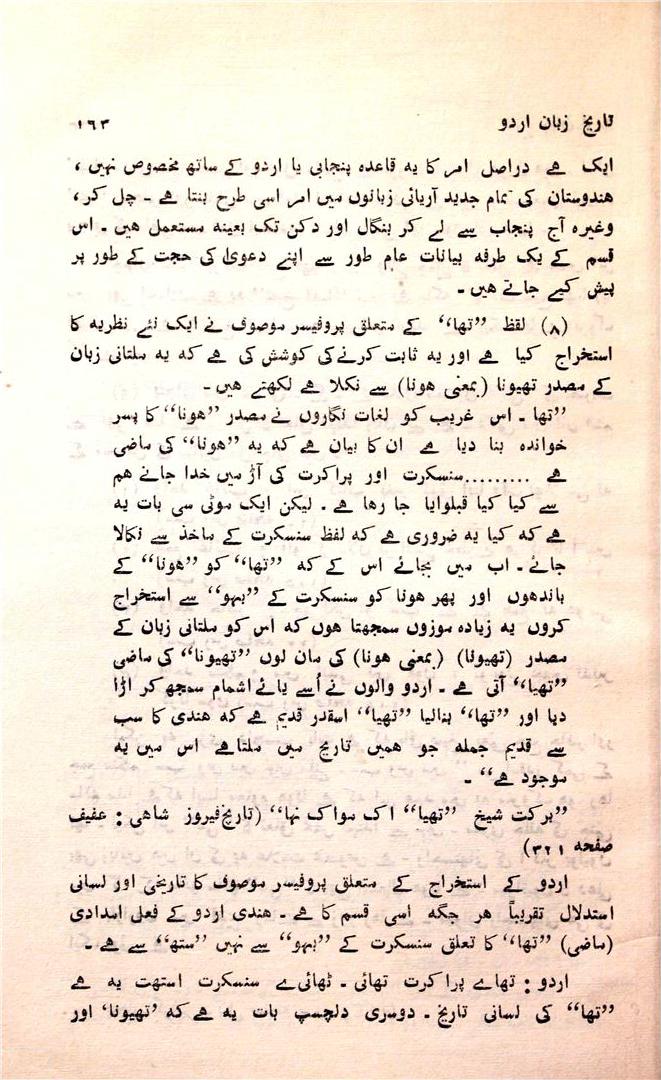 تاریخ زبان اردو ۱۶۳
ایک ہے دراصل امر کا یہ قاعدہ پنجابی یا اردو کے ساتھ مخصوص نہیں ،
ہندوستان کی تمام جدید آریائی زبانوں میں امر اسی طرح بنتا ہے ۔ چل کر ،
وغیرہ آج پنجاب سے لے کر بنگال اور دکن تک بعینہ مستعمل ہیں ۔ اس
قسم کے یک طرفہ بیانات عام طور سے اپنے دعویٰ کی حجت کے طور پر
پیش کیے جاتے ہیں ۔
(۸) لفظ ”تھا“ کے متعلق پروفیسر موصوف نے ایک نئے نظریہ کا
استخراج کیا ہے اور یہ ثابت کرنے کی کوشش کی ہے کہ یہ ملتانی زبان
کے مصدر تھیونا (بمعنی ہونا) سے نکلا ہے لکھتے ہیں ۔
”تھا ۔ اس غریب کو لغات نگاروں نے مصدر ”ہونا“ کا پسر
خواندہ بنا دیا ہے ان کا بیان ہے کہ یہ ”ہونا“ کی ماضی
ہے .......... سنسکرت اور پراکرت کی آڑ میں خدا جانے ہم
سے کیا کیا قبلوایا جا رہا ہے ۔ لیکن ایک موٹی سی بات یہ
ہے کہ کیا یہ ضروری ہے کہ لفظ سنسکرت کے ماخذ سے نکالا
جائے ۔ اب میں بجائے اس کے کہ ”تھا“ کو ”ہونا“ کے
باندھوں اور پھر ہونا کو سنسکرت کے ”بھو“ سے استخراج
کروں یہ زیادہ موزوں سمجھتا ہوں کہ اس کو ملتانی زبان کے
مصدر (تھیونا) (بمعنی ہونا) کی مان لوں ”تھیونا“ کی ماضی
”تھیا“ آتی ہے ۔ اردو والوں نے اُسے یائے اشمام سمجھ کر اڑا
دیا اور ”تھا“ بنالیا ”تھیا“ اسقدر قدیم ہے کہ ہندی کا سب
سے قدیم جملہ جو ہمیں تاریخ میں ملتا ہے اس میں یہ
موجود ہے“ ۔
”برکت شیخ ”تھیا“ اک موا اک نہا“ (تاریخ فیروز شاہی : عفیف
صفحہ ۳۲۱)
اردو کے استخراج کے متعلق پروفیسر موصوف کا تاریخی اور لسانی
استدلال تقریباً ہر جگہ اسی قسم کا ہے ۔ ہندی اردو کے فعلی امدادی
(ماضی) ”تھا“ کا تعلق سنسکرت کے ”بھو“ سے نہیں ”ستھ“ سے ہے ۔
اردو : تھا ے پراکرت تھائی ۔ ٹھائی ے سنسکرت استھت یہ ہے
”تھا“ کی لسانی تاریخ ۔ دوسری دلچسپ بات یہ ہے کہ ’تھیونا‘ اور